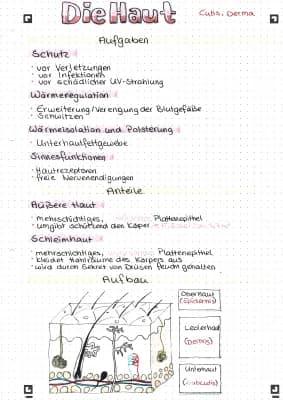 Die Haut
Cutis, Derma
Aufgaben
Schutz
· vor Verletzungen
· vor Infektionen
· vor schädlicher UV-Strahlung
Wärmeregulation
· Erweiterung/Verengung der Blutgefäße
· Schwitzen
Wärmeisolation und Polsterung
· Unterhautfettgewebe
Sinnesfunktionen
· Hautrezeptoren
· freie Nervenendigungen
Anteile
Äußere Haut
· mehrschichtiges, Plattenepithel
· umgibt schützend den Körper
Schleimhaut
· mehrschichtiges, Plattenepithel
· kleidet Hohlräume des Körpers aus
· wird durch Sekret von Drüsen feucht gehalten
Aufbau
Oberhaut
(Epidermis)
Lederhaut
(Dermis)
Unterhaut
(Subcutis)